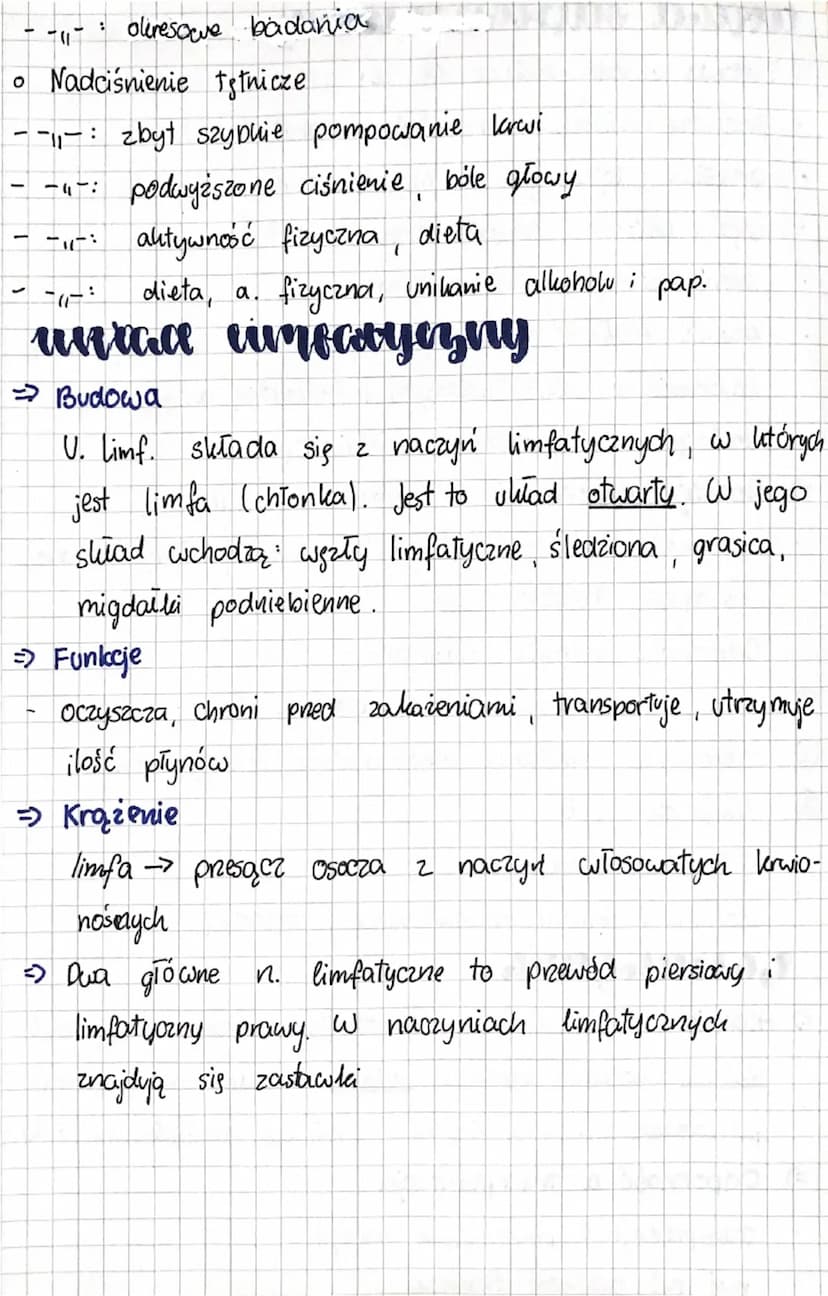 - -"- : okresowe badania
○ Nadciśnienie tętnicze
- -"- : zbyt szybkie pompowanie krwi
- -"-: podwyższone ciśnienie, bóle głowy
- -"-: aktywność fizyczna, dieta
- -"-: dieta, a. fizyczna, unikanie alkoholu i pap.
układ limfatyczny
⇒ Budowa
U. limf. składa się z naczyń limfatycznych, w których
jest limfa (chłonka). Jest to układ otwarty. W jego
skład wchodzą: węzły limfatyczne, śledziona, grasica,
migdałki podniebienne.
⇒ Funkcje
- oczyszcza, chroni przed zakażeniami, transportuje, utrzymuje
ilość płynów
⇒ Krążenie
limfa → przesącz osocza z naczyń włosowatych krwio-
nośnych
⇒ Dwa główne n. limfatyczne to przewód piersiowy i
limfatyczny prawy. W naczyniach limfatycznych
znajdują się zastawki